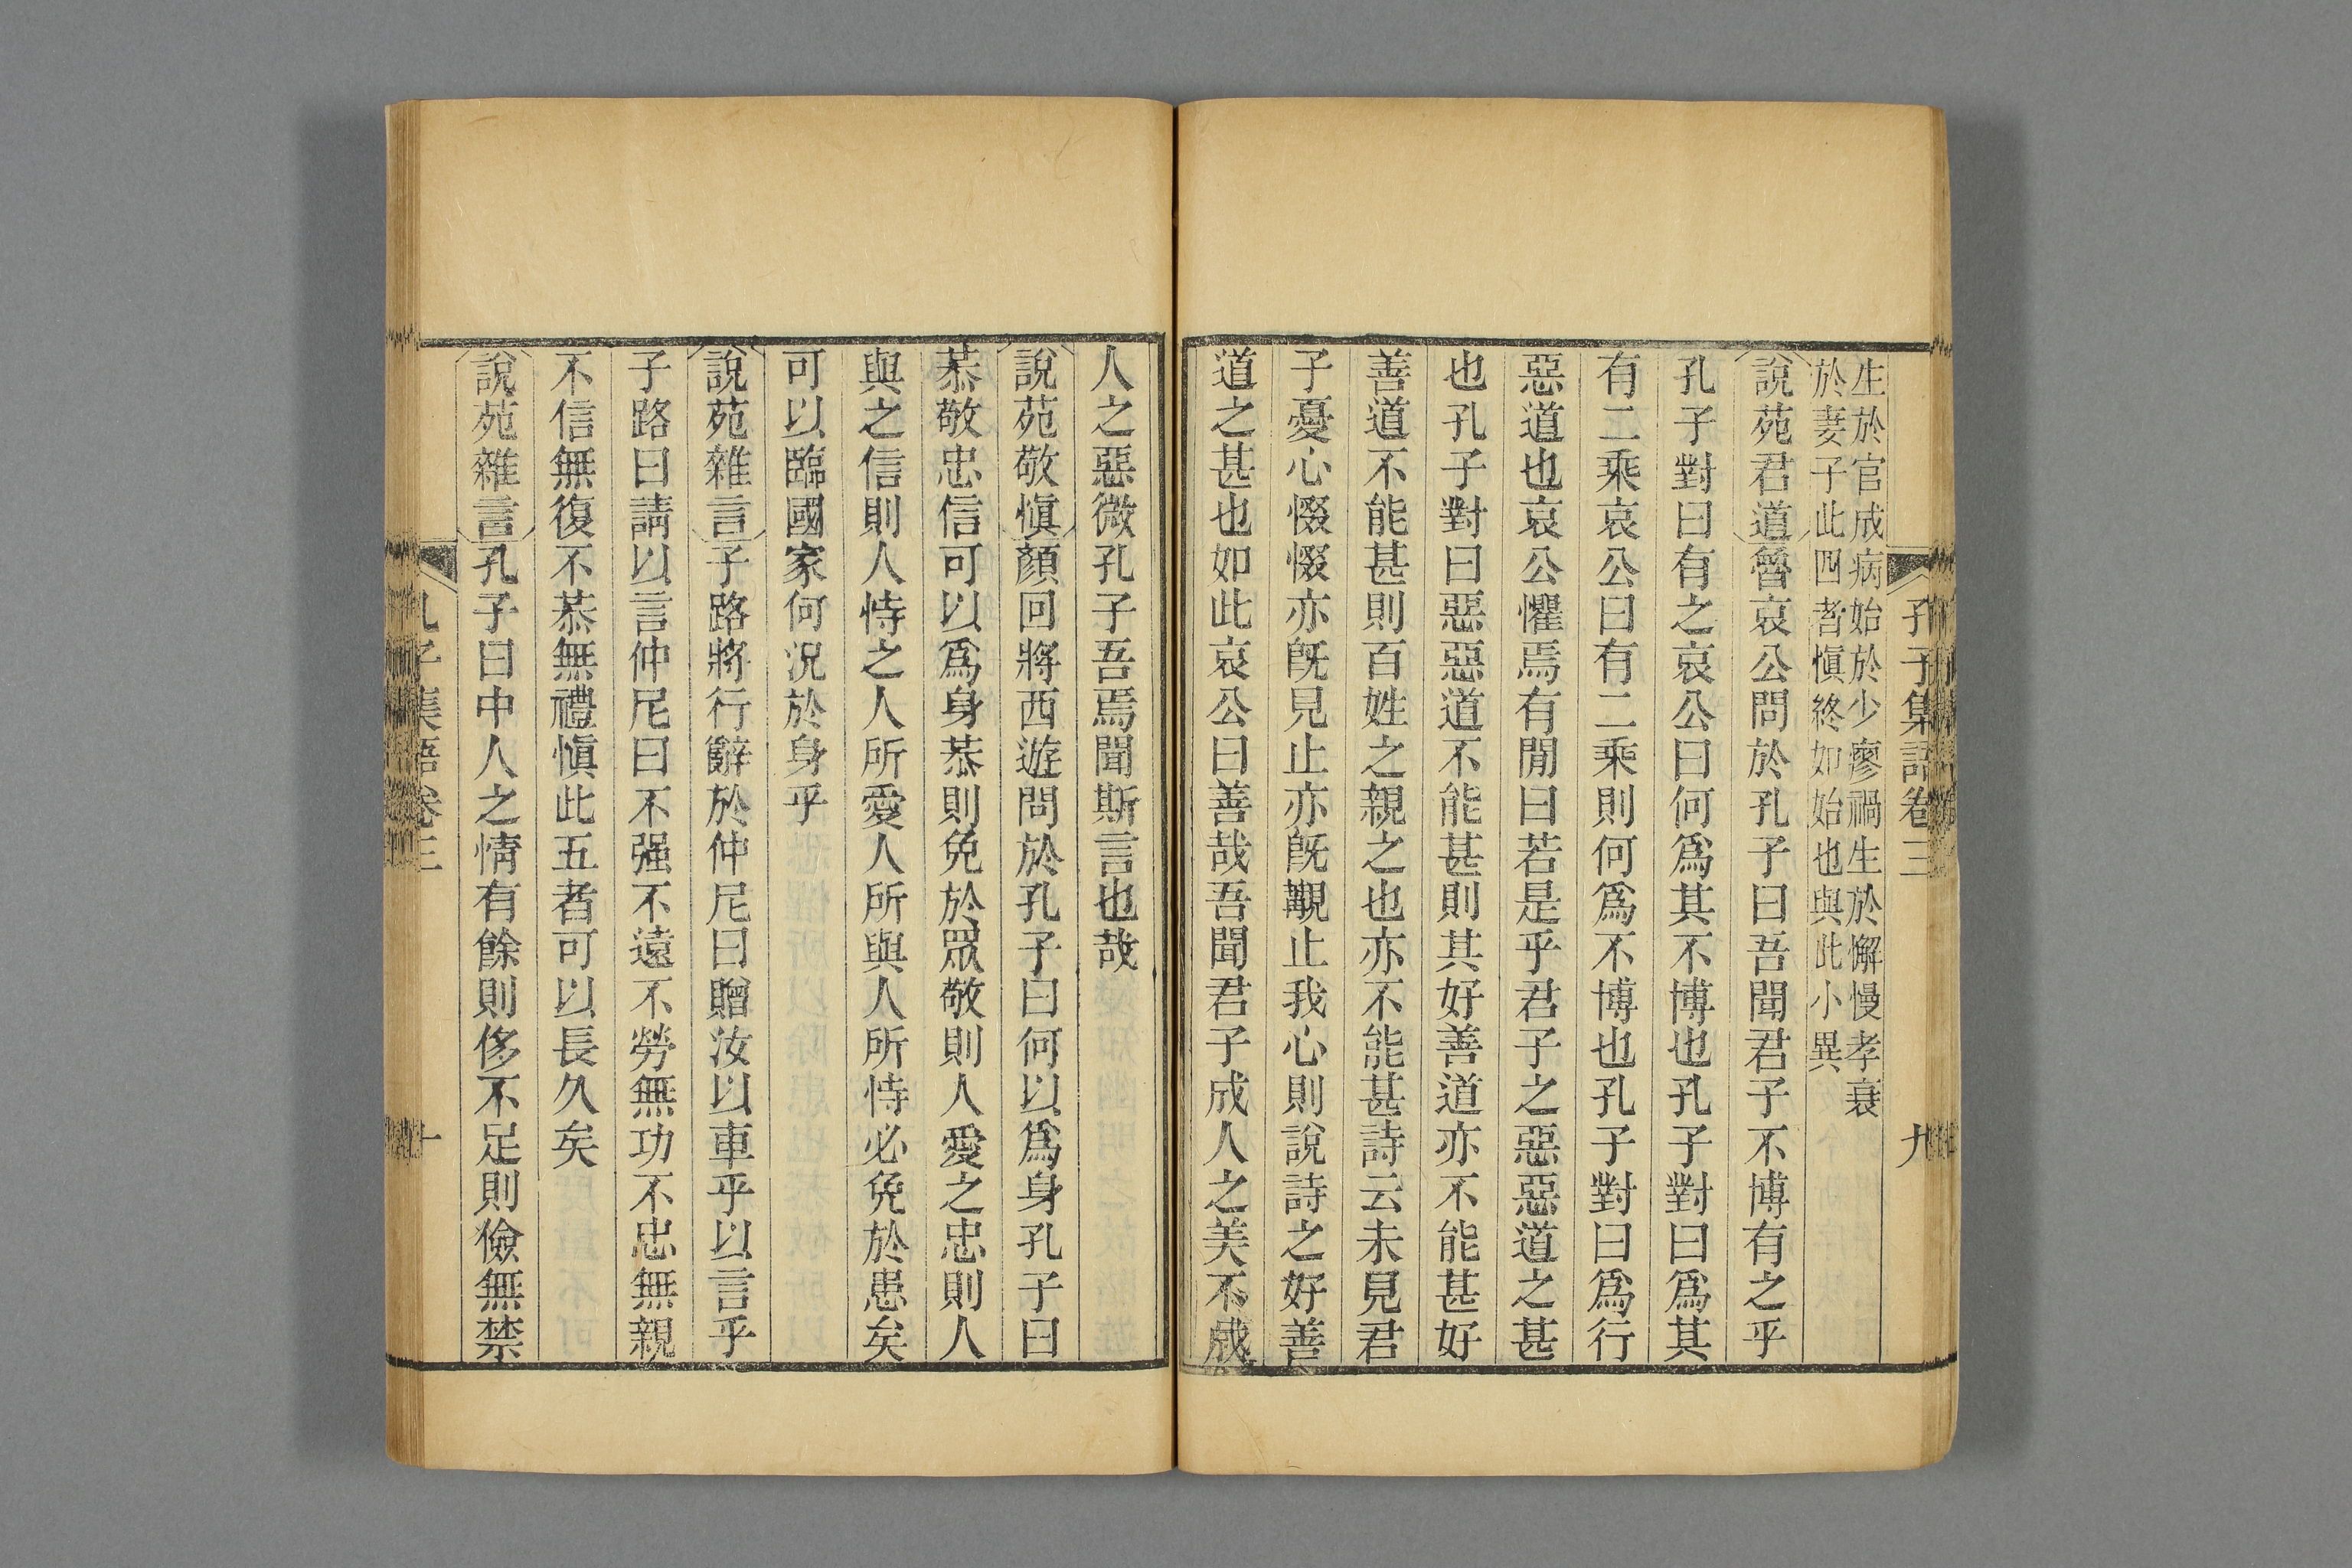 孔子集語卷三 九
生於官成病始於少瘳禍生於懈慢孝衰
於妻子此四者愼終如始也與此小異
說苑君道魯哀公問於孔子曰吾聞君子不博有之乎
孔子對曰有之哀公曰何爲其不博也孔子對曰爲其
有二乘哀公曰有二乘則何爲不博也孔子對曰爲行
惡道也哀公懼焉有閒曰若是乎君子之惡惡道之甚
也孔子對曰惡惡道不能甚則其好善道亦不能甚好
善道不能甚則百姓之親之也亦不能甚詩云未見君
子憂心惙惙亦旣見止亦旣覯止我心則說詩之好善
道之甚也如此哀公曰善哉吾聞君子成人之美不成
人之惡微孔子吾焉聞斯言也哉
說苑敬愼顏回將西遊問於孔子曰何以爲身孔子曰
恭敬忠信可以爲身恭則免於眾敬則人愛之忠則人
與之信則人恃之人所愛人所與人所恃必免於患矣
可以臨國家何況於身乎
說苑雜言子路將行辭於仲尼曰贈汝以車乎以言乎
子路曰請以言仲尼曰不强不遠不勞無功不忠無親
不信無復不恭無禮愼此五者可以長久矣
說苑雜言孔子曰中人之情有餘則侈不足則儉無禁
孔子集語卷三 十